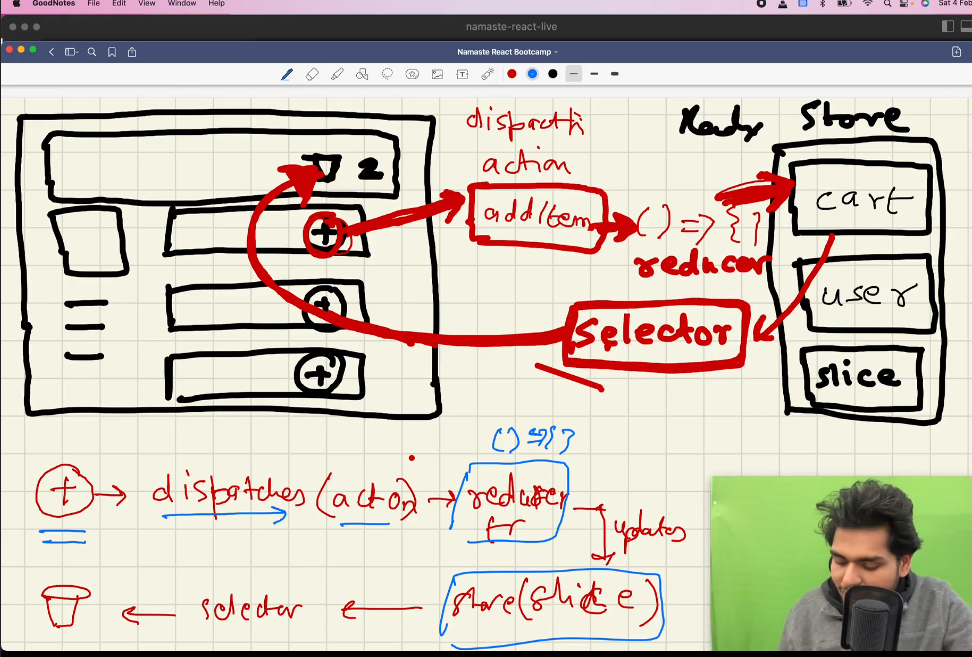 GoodNotes File Edit View Window Help
Sat 4 Feb
namaste-react-live
Namaste React Bootcamp
dispatch
action
Redux Store
2
cart
+
addItem
() => {}
reducer
user
+
selector
+
slice
() => {}
+ → dispatches (action) → reducer
fr
updates
← selector ← store (slice)